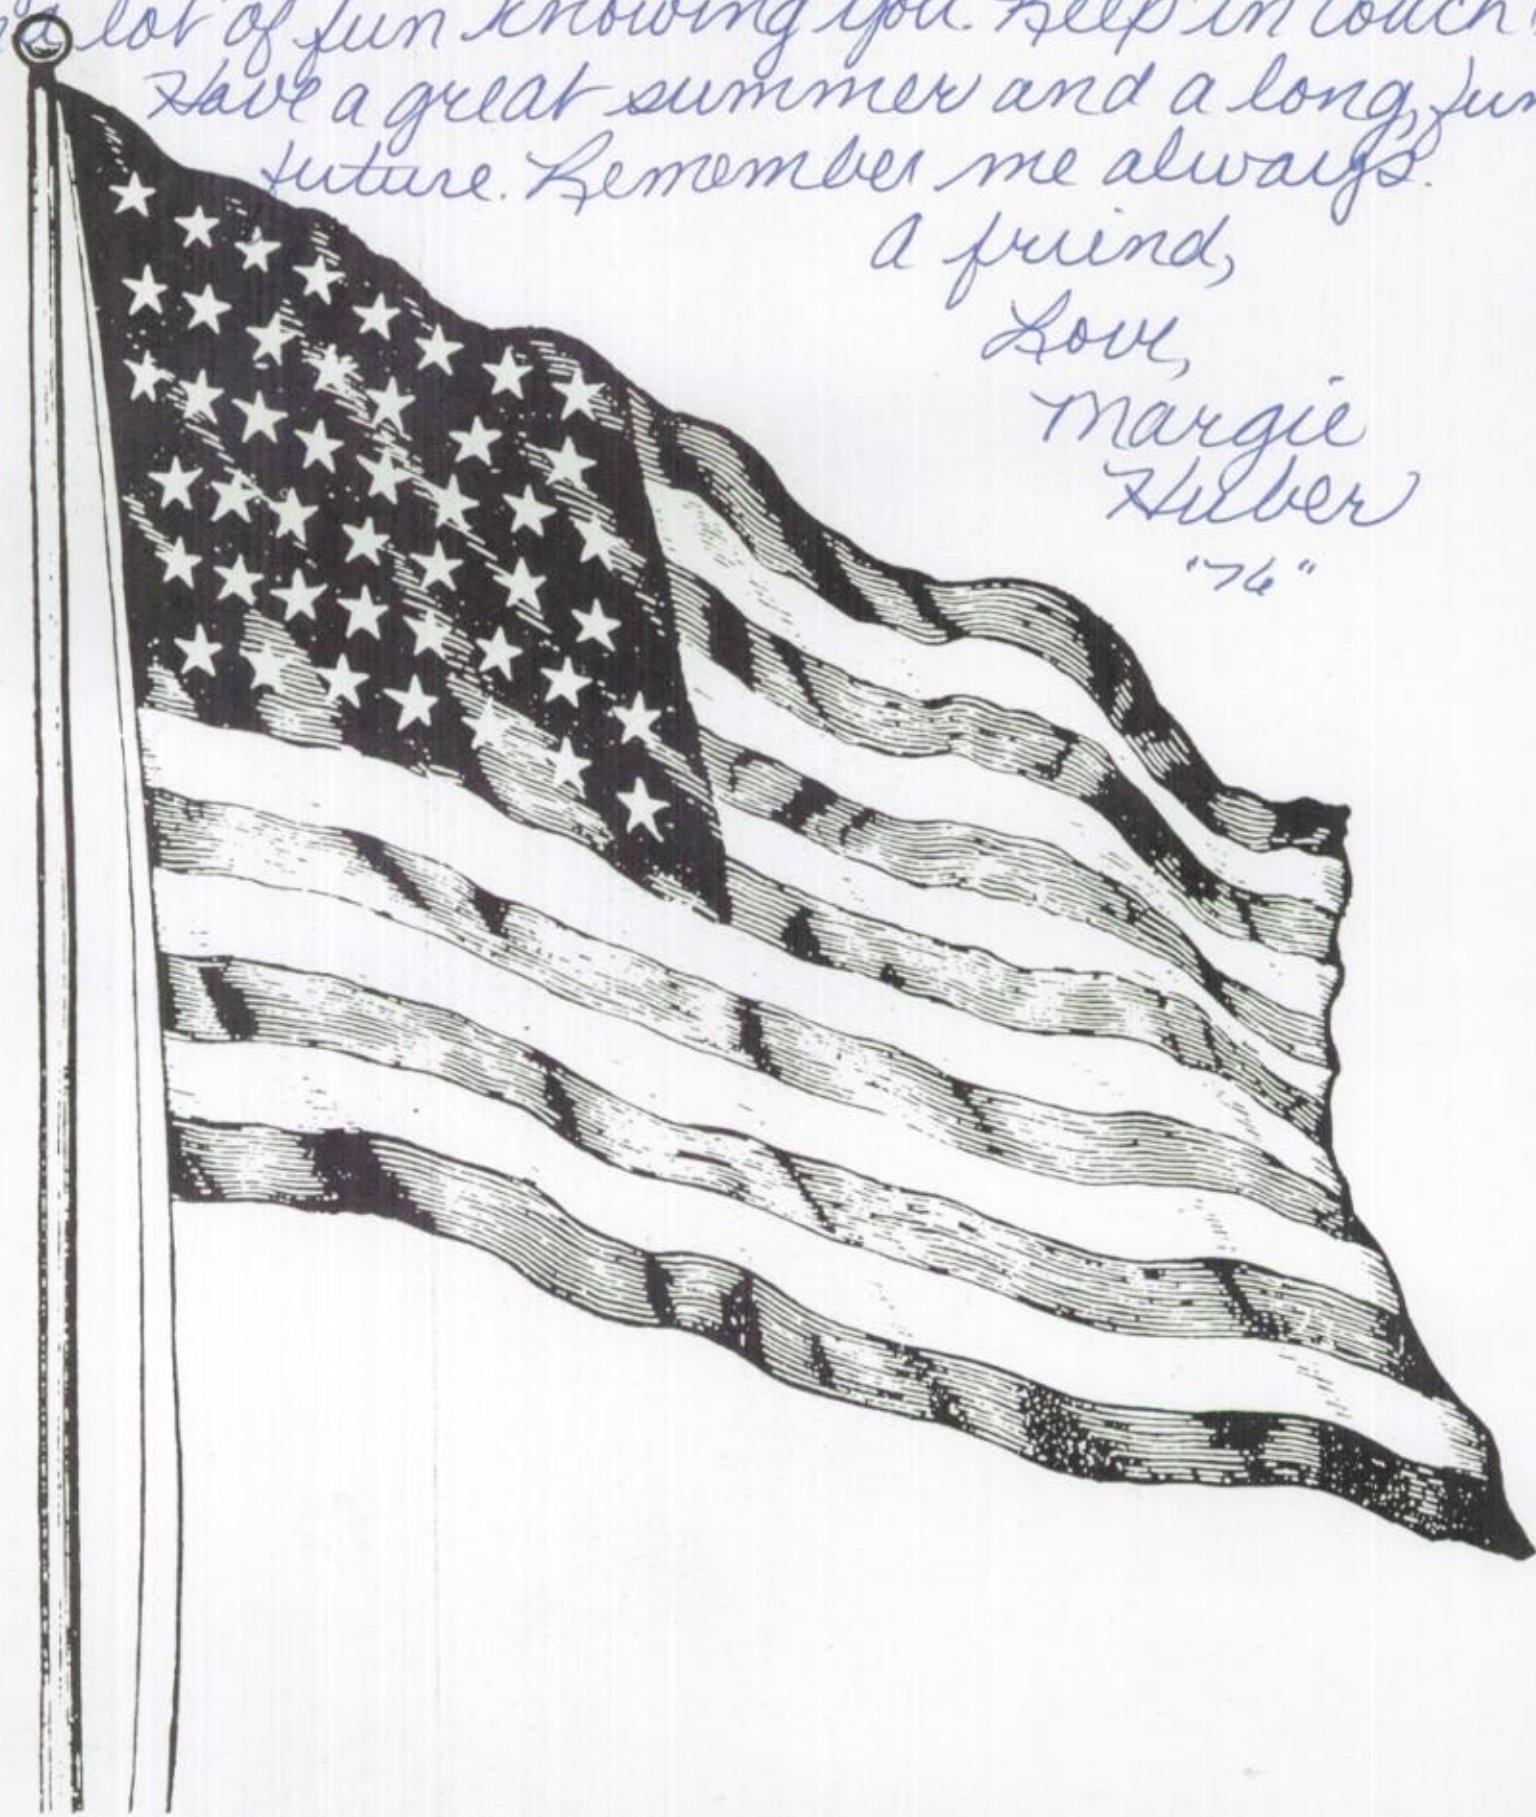 a lot of fun knowing you. Keep in touch
Have a great summer and a long, fun
future. Remember me always.
A friend,
Love,
Margie
Huber
"76"